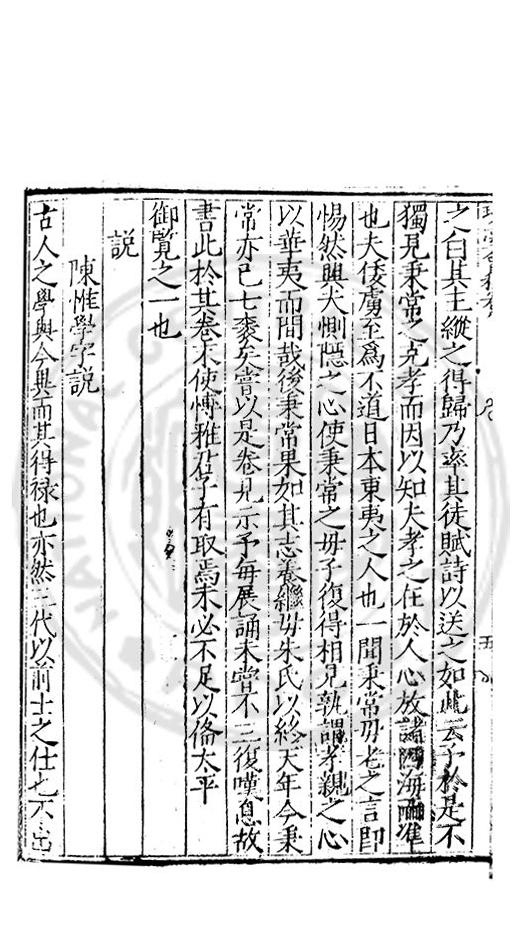 之白其王縱之得歸乃率其徒賦詩以送之如此云予於是不
獨見秉常之克孝而因以知夫孝之在於人心放諸四海而准
也夫倭虜至爲不道日本東夷之人也一聞秉常毋老之言卽
惕然興夫惻隱之心使秉常之毋子復得相見孰謂孝親之心
以華夷而間哉後秉常果如其志養繼毋朱氏以終天年今秉
常亦已七袠矣嘗以是卷見示予每展誦未嘗不三復嘆息故
書此於其卷末使博雅君子有取焉未必不足以俻太平
御覧之一也
説
陳惟學字説
古人之學與今異而其得禄也亦然三代以前士之仕也不出